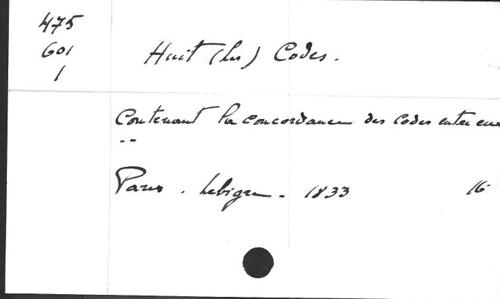 475
601
1
Huit (les) Codes.
Contenant la concordance des codes entre eux
..
Paris. Lebigre. 1833 16